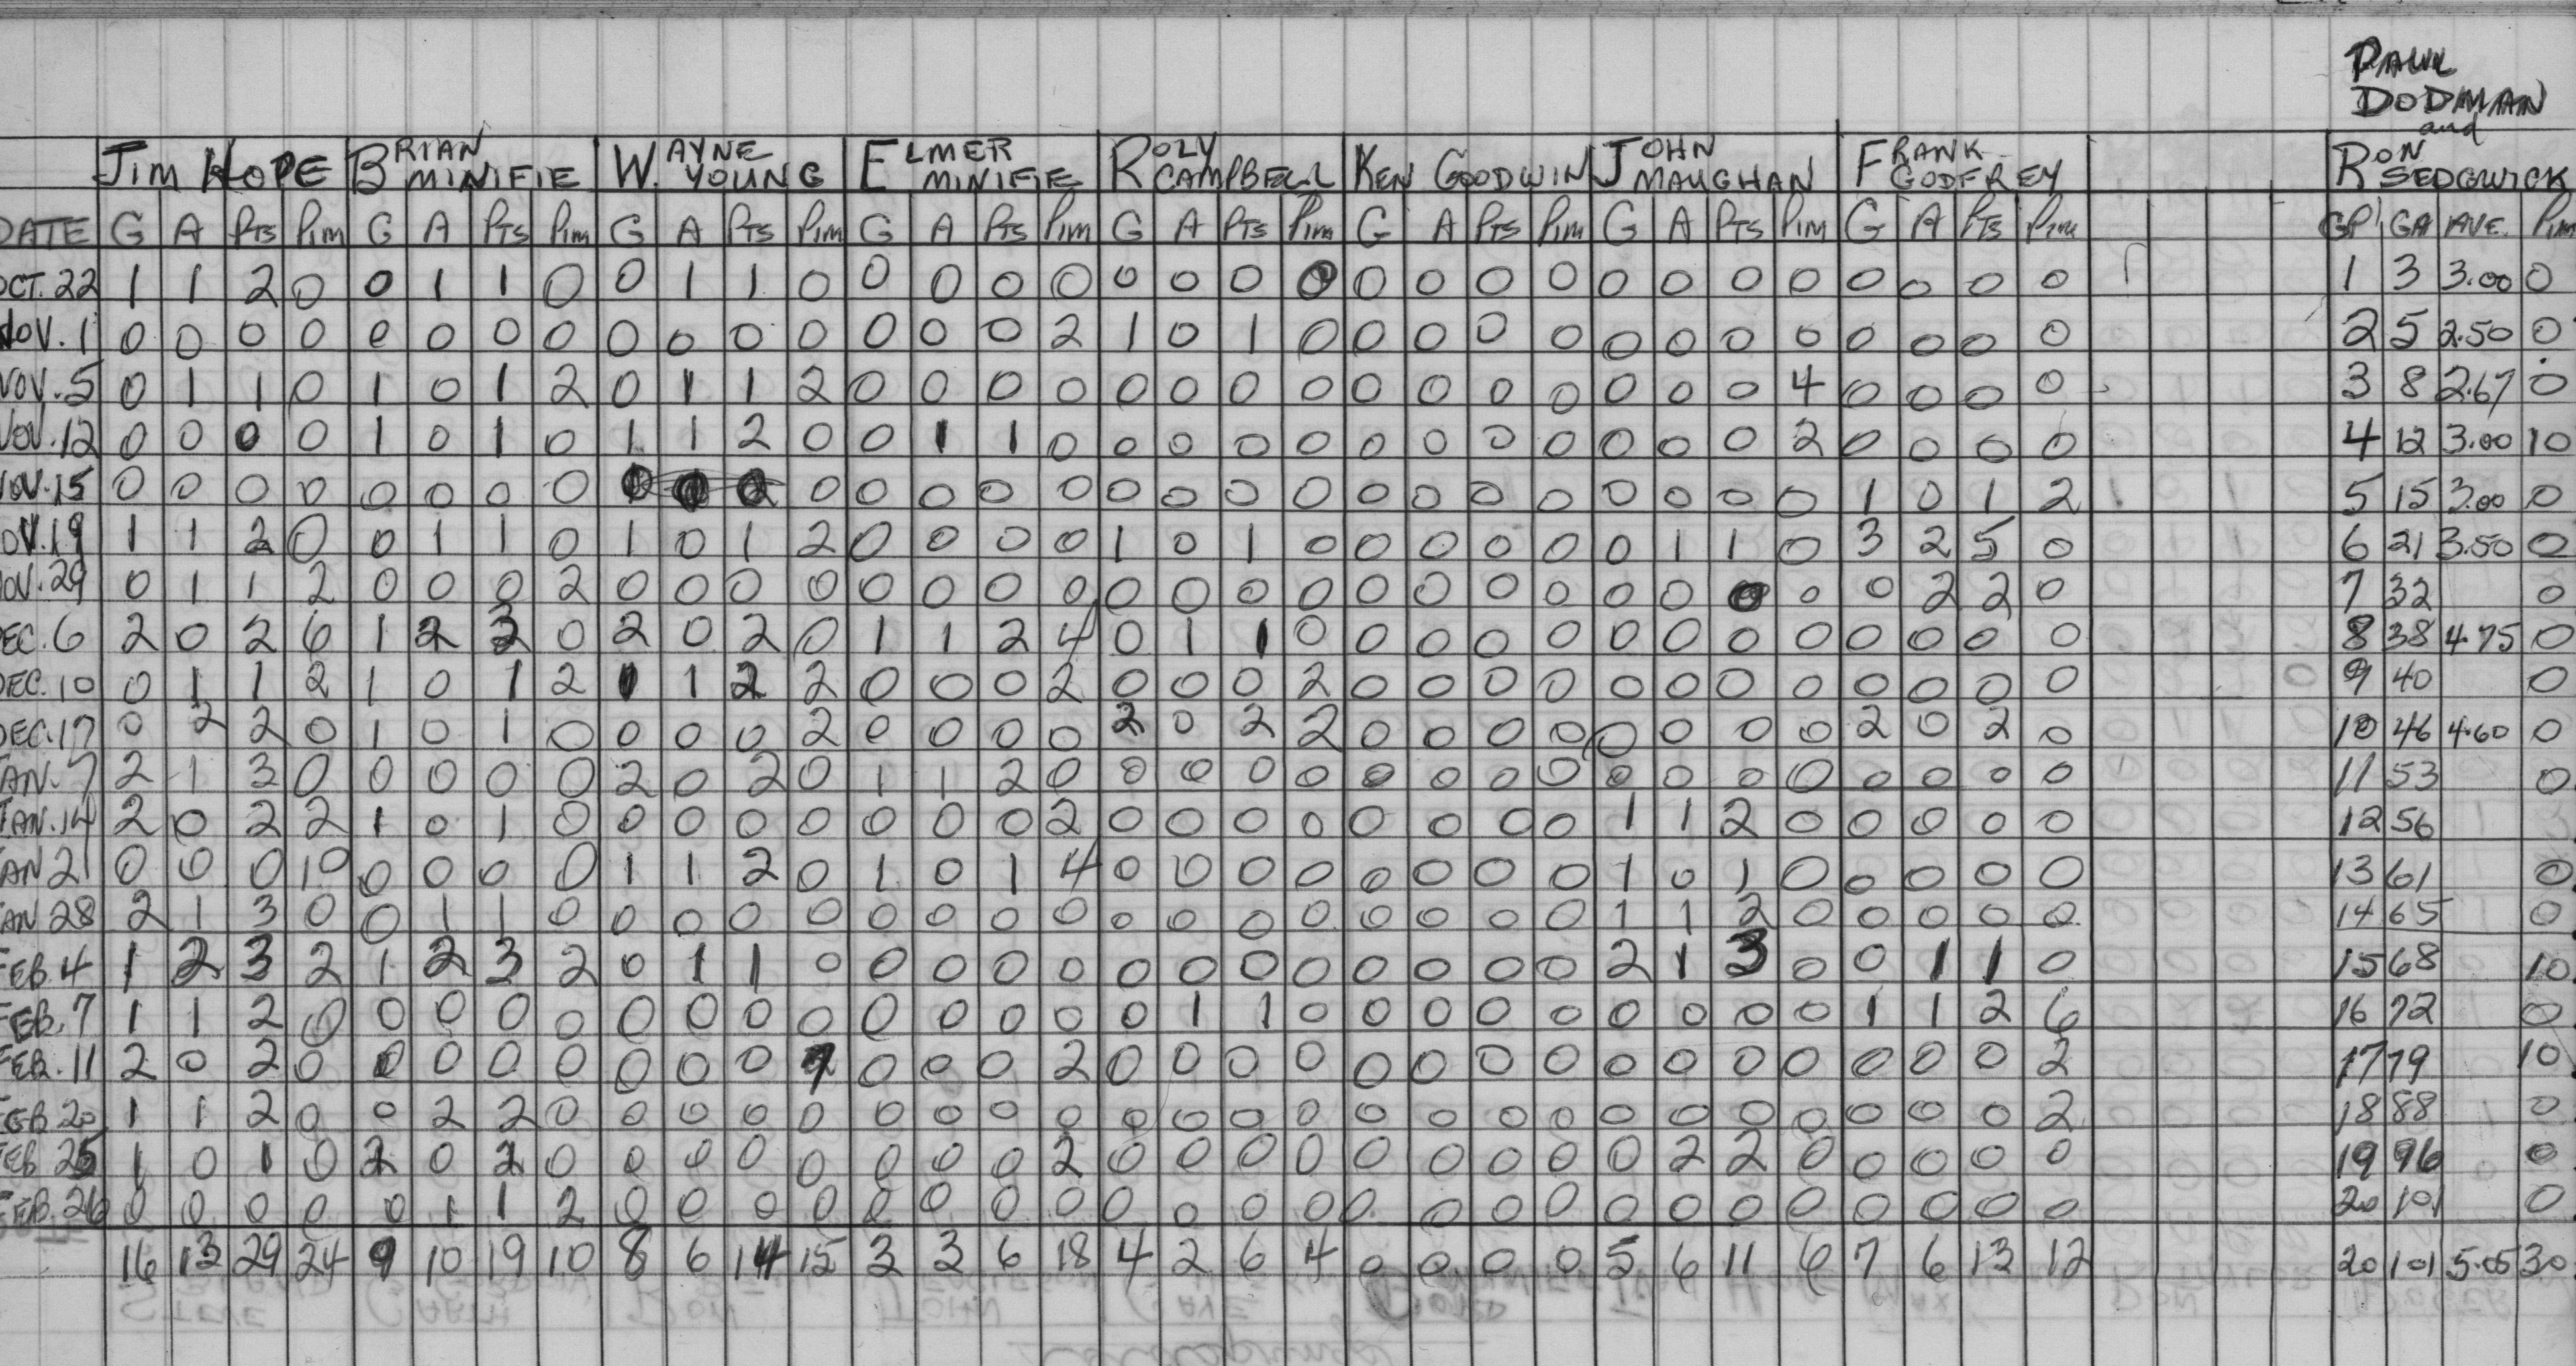 PAUL
DODMAN
and
JIM HOPE BRIAN MINIFIE WAYNE YOUNG ELMER MINIFIE ROLY CAMPBELL KEN GOODWIN JOHN MAUGHAN FRANK GODFREY RON SEDGWICK
DATE G A Pts Pim G A Pts Pim G A Pts Pim G A Pts Pim G A Pts Pim G A Pts Pim G A Pts Pim G A Pts Pim GP GA AVE. Pim
OCT. 22 1 1 2 0 0 1 1 0 0 1 1 0 0 0 0 0 0 0 0 0 0 0 0 0 0 0 0 0 0 0 0 0 1 3 3.00 0
NOV. 1 0 0 0 0 0 0 0 0 0 0 0 0 0 0 0 2 1 0 1 0 0 0 0 0 0 0 0 0 0 0 0 0 2 5 2.50 0
NOV. 5 0 1 1 0 1 0 1 2 0 1 1 2 0 0 0 0 0 0 0 0 0 0 0 0 0 0 0 4 0 0 0 0 3 8 2.67 0
NOV. 12 0 0 0 0 1 0 1 0 1 1 2 0 0 1 1 0 0 0 0 0 0 0 0 0 0 0 0 2 0 0 0 0 4 12 3.00 10
NOV. 15 0 0 0 0 0 0 0 0 0 0 0 0 0 0 0 0 0 0 0 0 0 0 0 0 0 1 0 1 2 5 15 3.00 0
NOV. 19 1 1 2 0 0 1 1 0 1 0 1 2 0 0 0 0 1 0 1 0 0 0 0 0 0 1 1 0 3 2 5 0 6 21 3.50 0
NOV. 29 0 1 1 2 0 0 0 2 0 0 0 0 0 0 0 0 0 0 0 0 0 0 0 0 0 0 0 0 0 2 2 0 7 32 0
DEC. 6 2 0 2 6 1 2 3 0 2 0 2 0 1 1 2 4 0 1 1 0 0 0 0 0 0 0 0 0 0 0 0 0 8 38 4.75 0
DEC. 10 0 1 1 2 1 0 1 2 1 1 2 2 0 0 0 2 0 0 0 2 0 0 0 0 0 0 0 0 0 0 0 0 9 40 0
DEC. 17 0 2 2 0 1 0 1 0 0 0 0 2 0 0 0 0 2 0 2 2 0 0 0 0 0 0 0 0 2 0 2 0 10 46 4.60 0
JAN. 7 2 1 3 0 0 0 0 0 2 0 2 0 1 1 2 0 0 0 0 0 0 0 0 0 0 0 0 0 0 0 0 0 11 53 0
JAN. 14 2 0 2 2 1 0 1 0 0 0 0 0 0 0 0 2 0 0 0 0 0 0 0 0 1 1 2 0 0 0 0 0 12 56
JAN 21 0 0 0 10 0 0 0 0 1 1 2 0 1 0 1 4 0 0 0 0 0 0 0 0 1 0 1 0 0 0 0 0 13 61 0
JAN 28 2 1 3 0 0 1 1 0 0 0 0 0 0 0 0 0 0 0 0 0 0 0 0 0 1 1 2 0 0 0 0 0 14 65 0
FEB. 4 1 2 3 2 1 2 3 2 0 1 1 0 0 0 0 0 0 0 0 0 0 0 0 0 2 1 3 0 0 1 1 0 15 68 10
FEB. 7 1 1 2 0 0 0 0 0 0 0 0 0 0 0 0 0 0 1 1 0 0 0 0 0 0 0 0 0 1 1 2 6 16 72 0
FEB. 11 2 0 2 0 0 0 0 0 0 0 0 0 0 0 2 0 0 0 0 0 0 0 0 0 0 0 0 0 0 0 2 17 79 10
FEB 20 1 1 2 0 0 2 2 0 0 0 0 0 0 0 0 0 0 0 0 0 0 0 0 0 0 0 0 0 0 0 0 2 18 88 0
FEB 25 1 0 1 0 2 0 2 0 0 0 0 0 0 0 0 2 0 0 0 0 0 0 0 0 0 2 2 0 0 0 0 0 19 96 0
FEB. 26 0 0 0 0 0 1 1 2 0 0 0 0 0 0 0 0 0 0 0 0 0 0 0 0 0 0 0 0 0 0 0 0 20 101 0
16 13 29 24 9 10 19 10 8 6 14 15 3 3 6 18 4 2 6 4 0 0 0 0 5 6 11 6 7 6 13 12 20 101 5.05 30